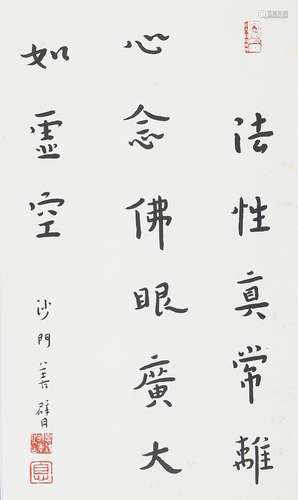 法性真常離
心念佛眼廣大
如虛空
沙門